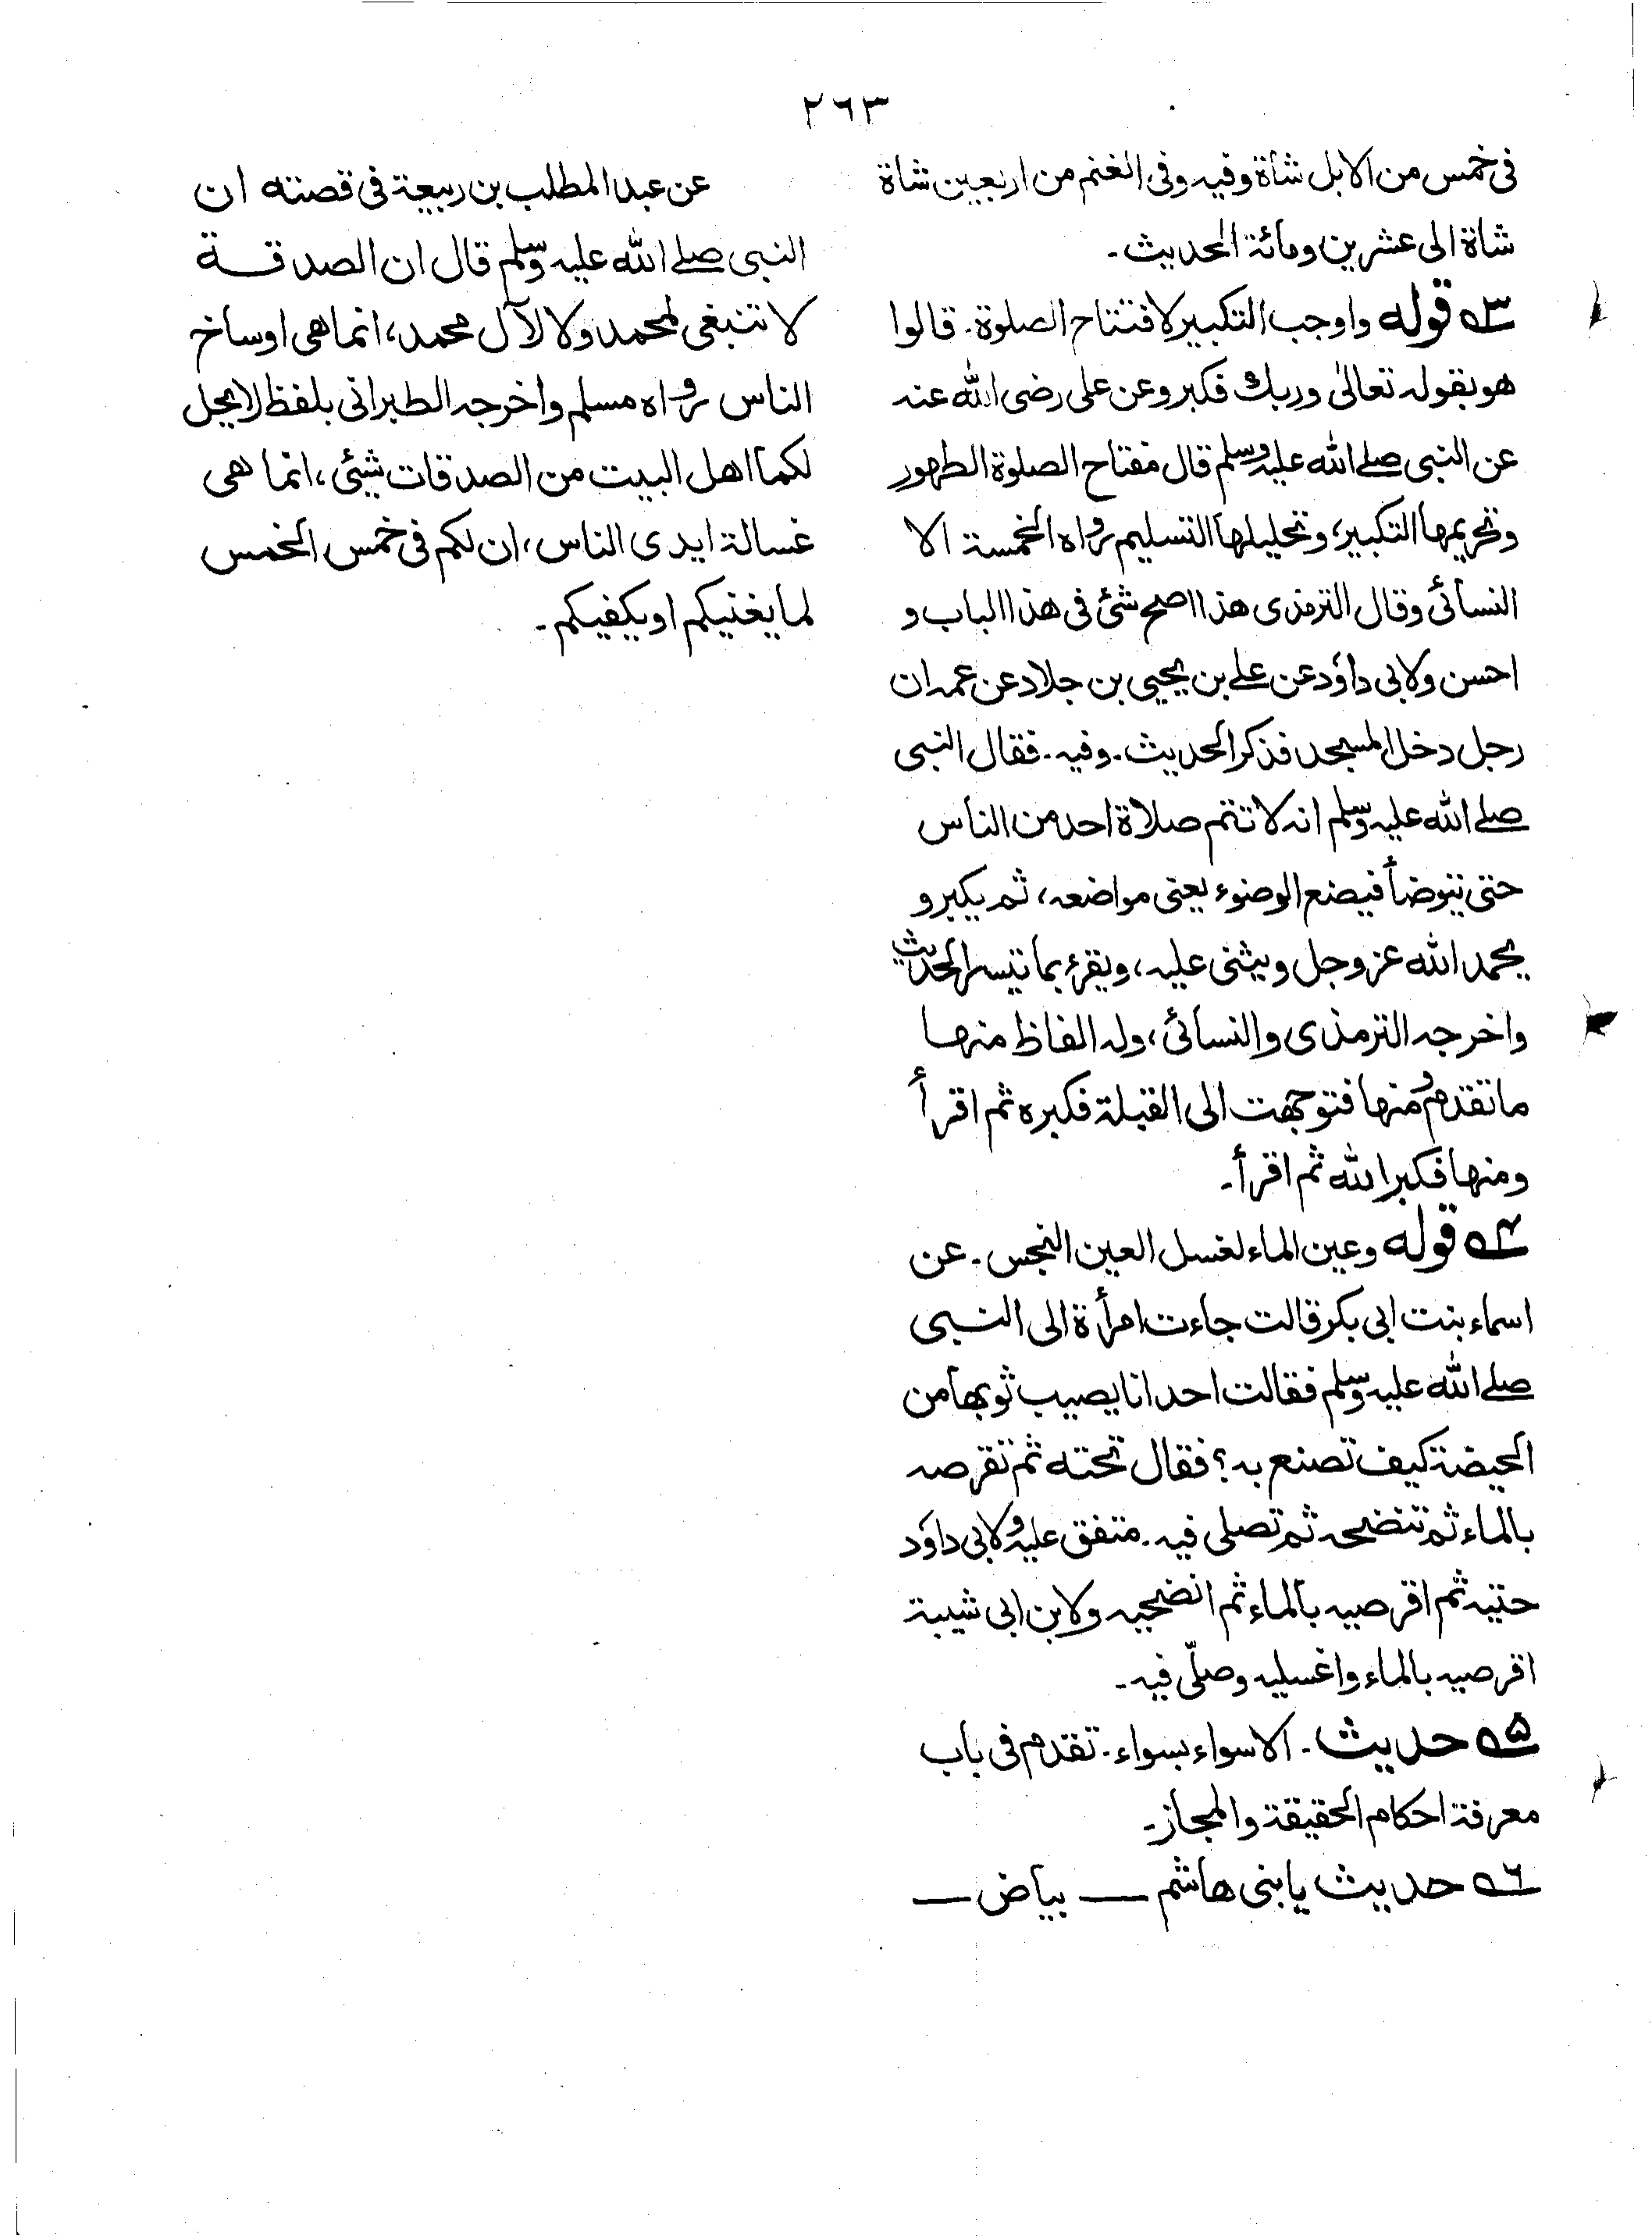 ٢٦٣
فى خمس من الابل شاة وفيه وفى الغنم من اربعين شاة
شاة الى عشرين ومائة الحديث۔
٣ه قوله واوجب التكبير لافتتاح الصلوة۔ قالوا
هو بقوله تعالىٰ وربك فكبر وعن على رضى الله عنه
عن النبى صلے الله عليه وسلم قال مفتاح الصلوة الطهور
وتحريمها التكبير، وتحليلها التسليم رواه الخمسة الا
النسائى وقال الترمذى هذا اصح شئ فى هذا الباب و
احسن ولابى داؤد عن على بن يحيى بن جلاد عن عمه ان
رجل دخل المسجد فذكر الحديث۔ وفيه۔ فقال النبى
صلے الله عليه وسلم انه لا تتم صلاة احد من الناس
حتى يتوضأ فيضع الوضوء يعنى مواضعه، ثم يكبر و
يحمد الله عز وجل ويثنى عليه، ويقرء بما تيسر الحديث
واخرجه الترمذى والنسائى، وله الفاظ منها
ما تقدم ومنها فتوجهت الى القبلة فكبره ثم اقرأ
ومنها فكبر الله ثم اقرأ۔
٤ه قوله وعين الماء لغسل العين النجس۔ عن
اسماء بنت ابى بكر قالت جاءت امرأة الى النبى
صلے الله عليه وسلم فقالت احدانا يصيب ثوبها من
الحيضة كيف تصنع به؟ فقال تحته ثم تقرصه
بالماء ثم تنضحه ثم تصلى فيه۔ متفق عليه ولابى داؤد
حتيه ثم اقرصيه بالماء ثم انضحيه ولابن ابى شيبة
اقرصيه بالماء واغسليه وصلّى فيه۔
۵ه حديث۔ الا سواء بسواء۔ تقدم فى باب
معرفة احكام الحقيقة والمجاز۔
٦ه حديث يا بنى هاشم — بياض —
عن عبد المطلب بن ربيعة فى قصته ان
النبى صلے الله عليه وسلم قال ان الصدقة
لا تنبغى لمحمد ولا لآل محمد، انما هى اوساخ
الناس رواه مسلم واخرجه الطبرانى بلفظ لا يحل
لكما اهل البيت من الصدقات شيئ، انما هى
غسالة ايدى الناس، ان لكم فى خمس الخمس
لما يغنيكم او يكفيكم۔